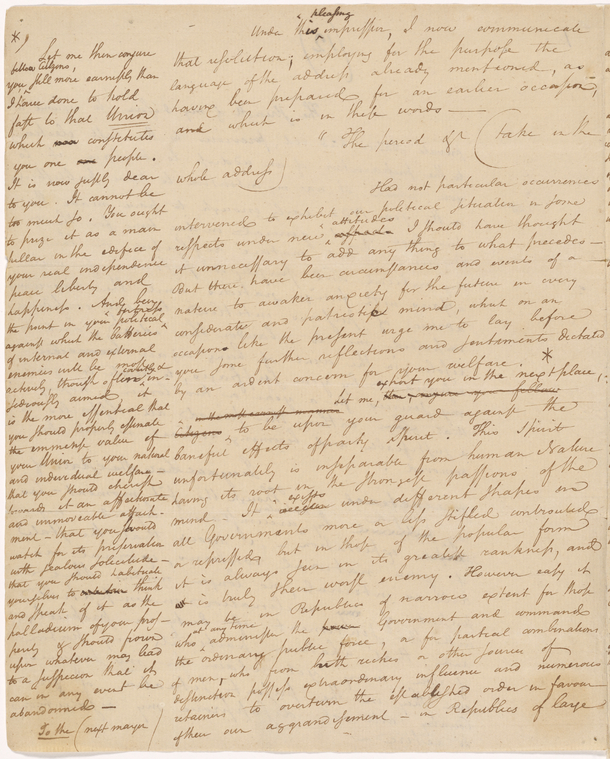 pleasing
Under this impression, I now communicate
that resolution; employing for the purpose the
language of the address already mentioned, as
having been prepared for an earlier occasion,
and which is in these words —
" The period &c (take in the
whole address)
Had not particular occurrences
intervened to exhibit our political situation in some
attitudes
respects under new I should have thought
it unnecessary to add any thing to what precedes—
But there have been circumstances and events of a
nature to awaken anxiety for the future in every
considerate and patriotic mind, which on an
occasion like the present urge me to lay before
you some further reflections and sentiments dictated
by an ardent concern for your welfare. *
Let me, exhort you in the next place,
to be upon your guard against the
baneful effects of party spirit. This Spirit
unfortunately is inseparable from human Nature
having its root in the strongest passions of the
exists
mind — It under different shapes in
all Governments more or less stifled controuled
or repressed but in those of the popular form
it is always seen in its greatest rankness, and
is truly their worst enemy. However easy it
may be in Republics of narrow extent for those
at any time
who administer the Government and command
the ordinary public force, or for partial combinations
of men, who from birth riches or other sources of
distinction possess extraordinary influence and numerous
retainers to overturn the established order in favour
of their own aggrandisement — in Republics of large
*)
Let me then conjure
fellow Citizens,
you still more earnestly than
I have done to hold
fast to that Union
which constitutes
you one people.
It is now justly dear
to you. It cannot be
too much so. You ought
to prize it as a main
pillar in the edifice of
your real independence
peace liberty and
happiness. And being
the point in your political
fortress
against which the batteries
of internal and external
enemies will be most
actively, though often
covertly &
insidiously aimed, it
is the more essential that
you should properly estimate
the immense value of
your Union to your national
and individual welfare—
that you should cherish
towards it an affectionate
and immoveable attach-
ment — that you should
watch for its preservation
with jealous solicitude—
that you should habituate
yourselves to think
and speak of it as the
palladium of your pros-
perity & should frown
upon whatever may lead
to a suspicion that it
can in any event be
abandonned —
To the (next mayor)